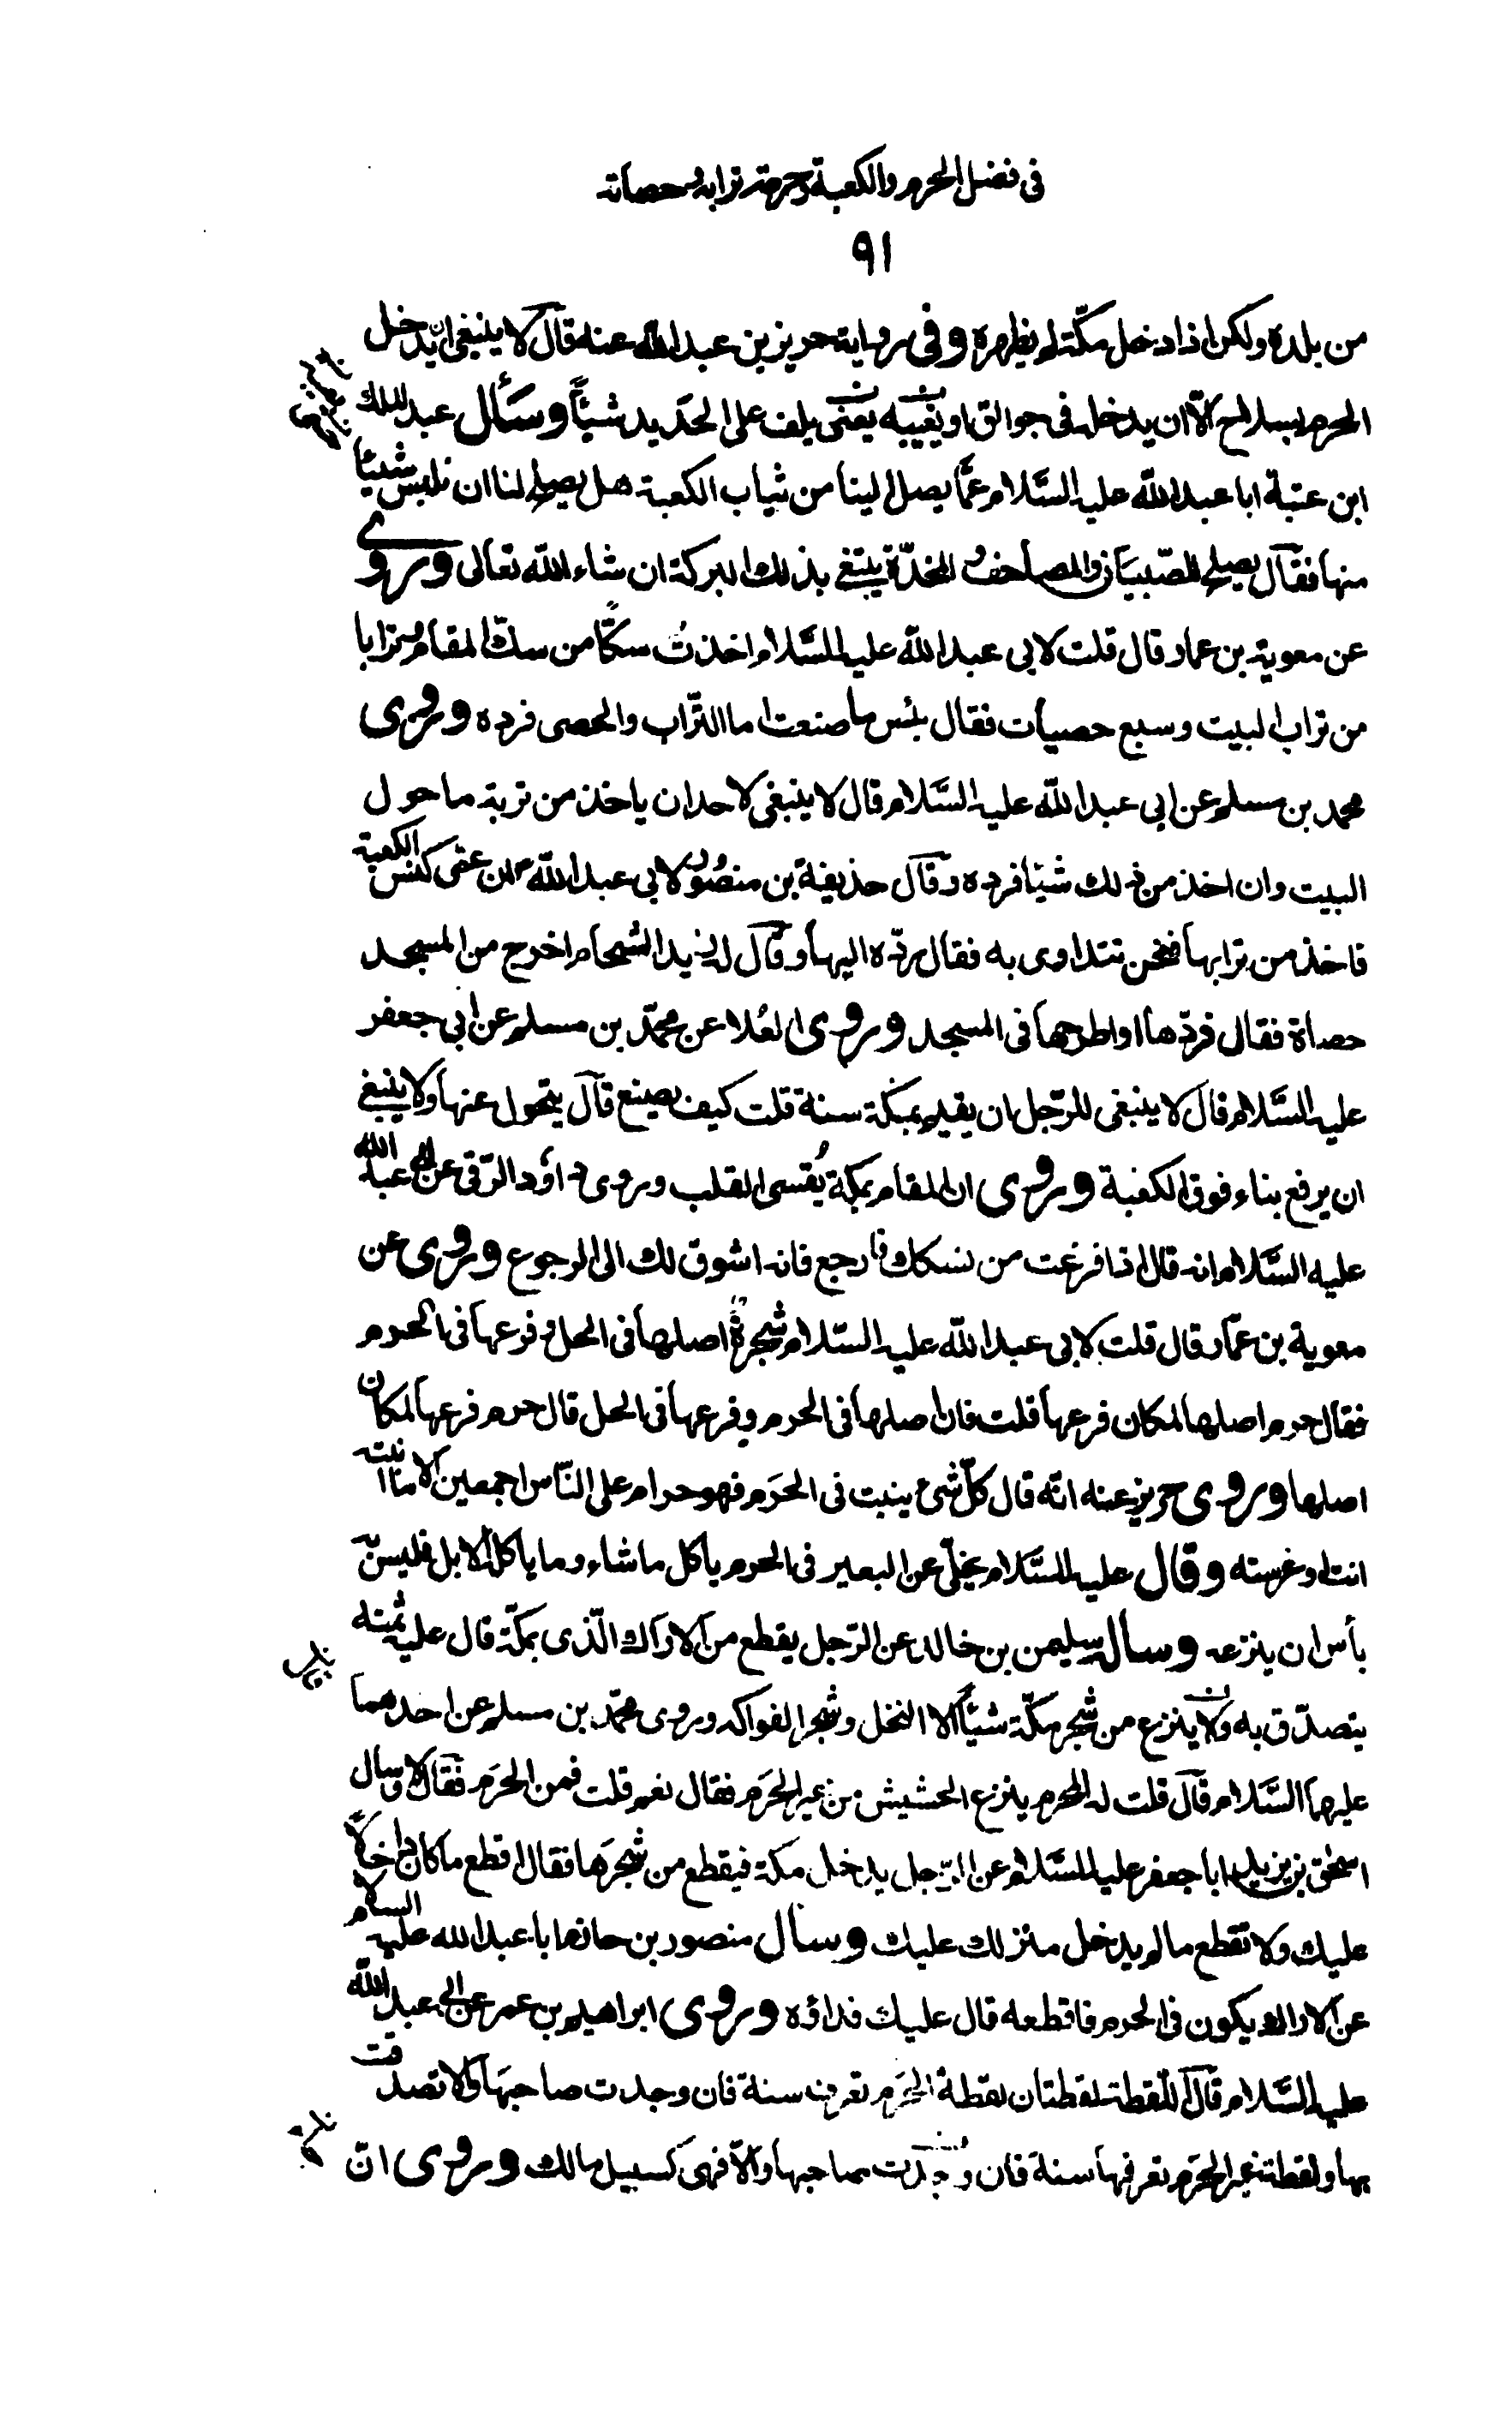 في فضل الحرم والكعبة وحرمة ترابه وحصاته
٩١
من بلده ولكن اذا دخل مكّة لم يظهره وفى رواية حريز بن عبد الله عنه قال لا ينبغى ان يدخل
الحرم بسلاح الّا ان يدخله فى جوالق او يغيبه يعنى يلف على الحديد شيئاً وسأل عبد الملك
ابن عتبة ابا عبد الله عليه السَّلام عمّا يصل الينا من ثياب الكعبة هل يصلح لنا ان نلبس شيئا
منها فقال يصلح للصّبيان والمصاحف والمخدّة يبتغى بذلك البركة ان شاء الله تعالى وروى
عن معوية بن عمار قال قلت لابى عبد الله عليه السَّلام اخذتُ سكّا من سكّ المقام وترابا
من تراب البيت وسبع حصيات فقال بئس ما صنعت اما التّراب والحصى فرده وروى
محمد بن مسلم عن ابى عبد الله عليه السَّلام قال لا ينبغى لاحد ان ياخذ من تربة ما حول
البيت وان اخذ من ذلك شيئا فرده وقال حذيفة بن منصور لابى عبد الله ان عمى كنس الكعبة
فاخذ من ترابها فنحن نتداوى به فقال ردّه اليها وقال له زيد الشحام اخرج من المسجد
حصاة فقال فردّها او اطرحها فى المسجد وروى العلا عن محمّد بن مسلم عن ابى جعفر
عليه السَّلام قال لا ينبغى للرّجل ان يقيم بمكّة سنة قلت كيف يصنع قال يتحول عنها ولا ينبغى
ان يرفع بناء فوق الكعبة وروى ان المقام بمكة يُقسى القلب وروى داؤد الرّقى عن ابى عبد الله
عليه السَّلام انه قال اذا فرغت من نسكك فارجع فانه اشوق لك الى الرجوع وروى عن
معوية بن عمّار قال قلت لابى عبد الله عليه السّلام شجرة اصلها فى الحل وفرعها فى الحرم
فقال حرم اصلها لمكان فرعها قلت فان اصلها فى الحرم وفرعها فى الحل قال حرم فرعها لمكان
اصلها وروى حريز عنه انّه قال كلّ شئ ينبت فى الحرَم فهو حرام على النّاس اجمعين الا ما انبته
انت او غرسته وقال عليه السَّلام يخلّى عن البعير فى الحرم ياكل ما شاء وما ياكل الابل فليس به
بأس ان ينزعه وسال سليمن بن خالد عن الرّجل يقطع من الاراك الّذى بمكّة قال عليه ثمنه
يتصدّق به ولا ينزع من شجر مكّة شيئاً الا النخل وشجر الفواكه وروى محمّد بن مسلم عن احدهما
عليهما السَّلام قال قلت له المحرم ينزع الحشيش من غير الحرَم فقال نعم قلت فمن الحرَم فقال لا وسال
اسحق بن يزيد ابا جعفر عليه السَّلام عن الرّجل يدخل مكة فيقطع من شجرها فقال اقطع ما كان داخلاً
عليك ولا تقطع ما لم يدخل منزلك عليك وسأل منصور بن حازم ابا عبد الله عليه السلام
عن الاراك يكون فى الحرم فاقطعه قال عليك فداؤه وروى ابراهيم بن عمر عن ابى عبد الله
عليه السَّلام قال اللّقطة لقطتان لقطة الحرَم تعرف سنة فان وجدت صاحبها والا تصدقت
بها ولقطة غير الحرَم تعرفها سنة فان وُجدت صاحبها والّا فهى كسبيل مالك وروى انّ